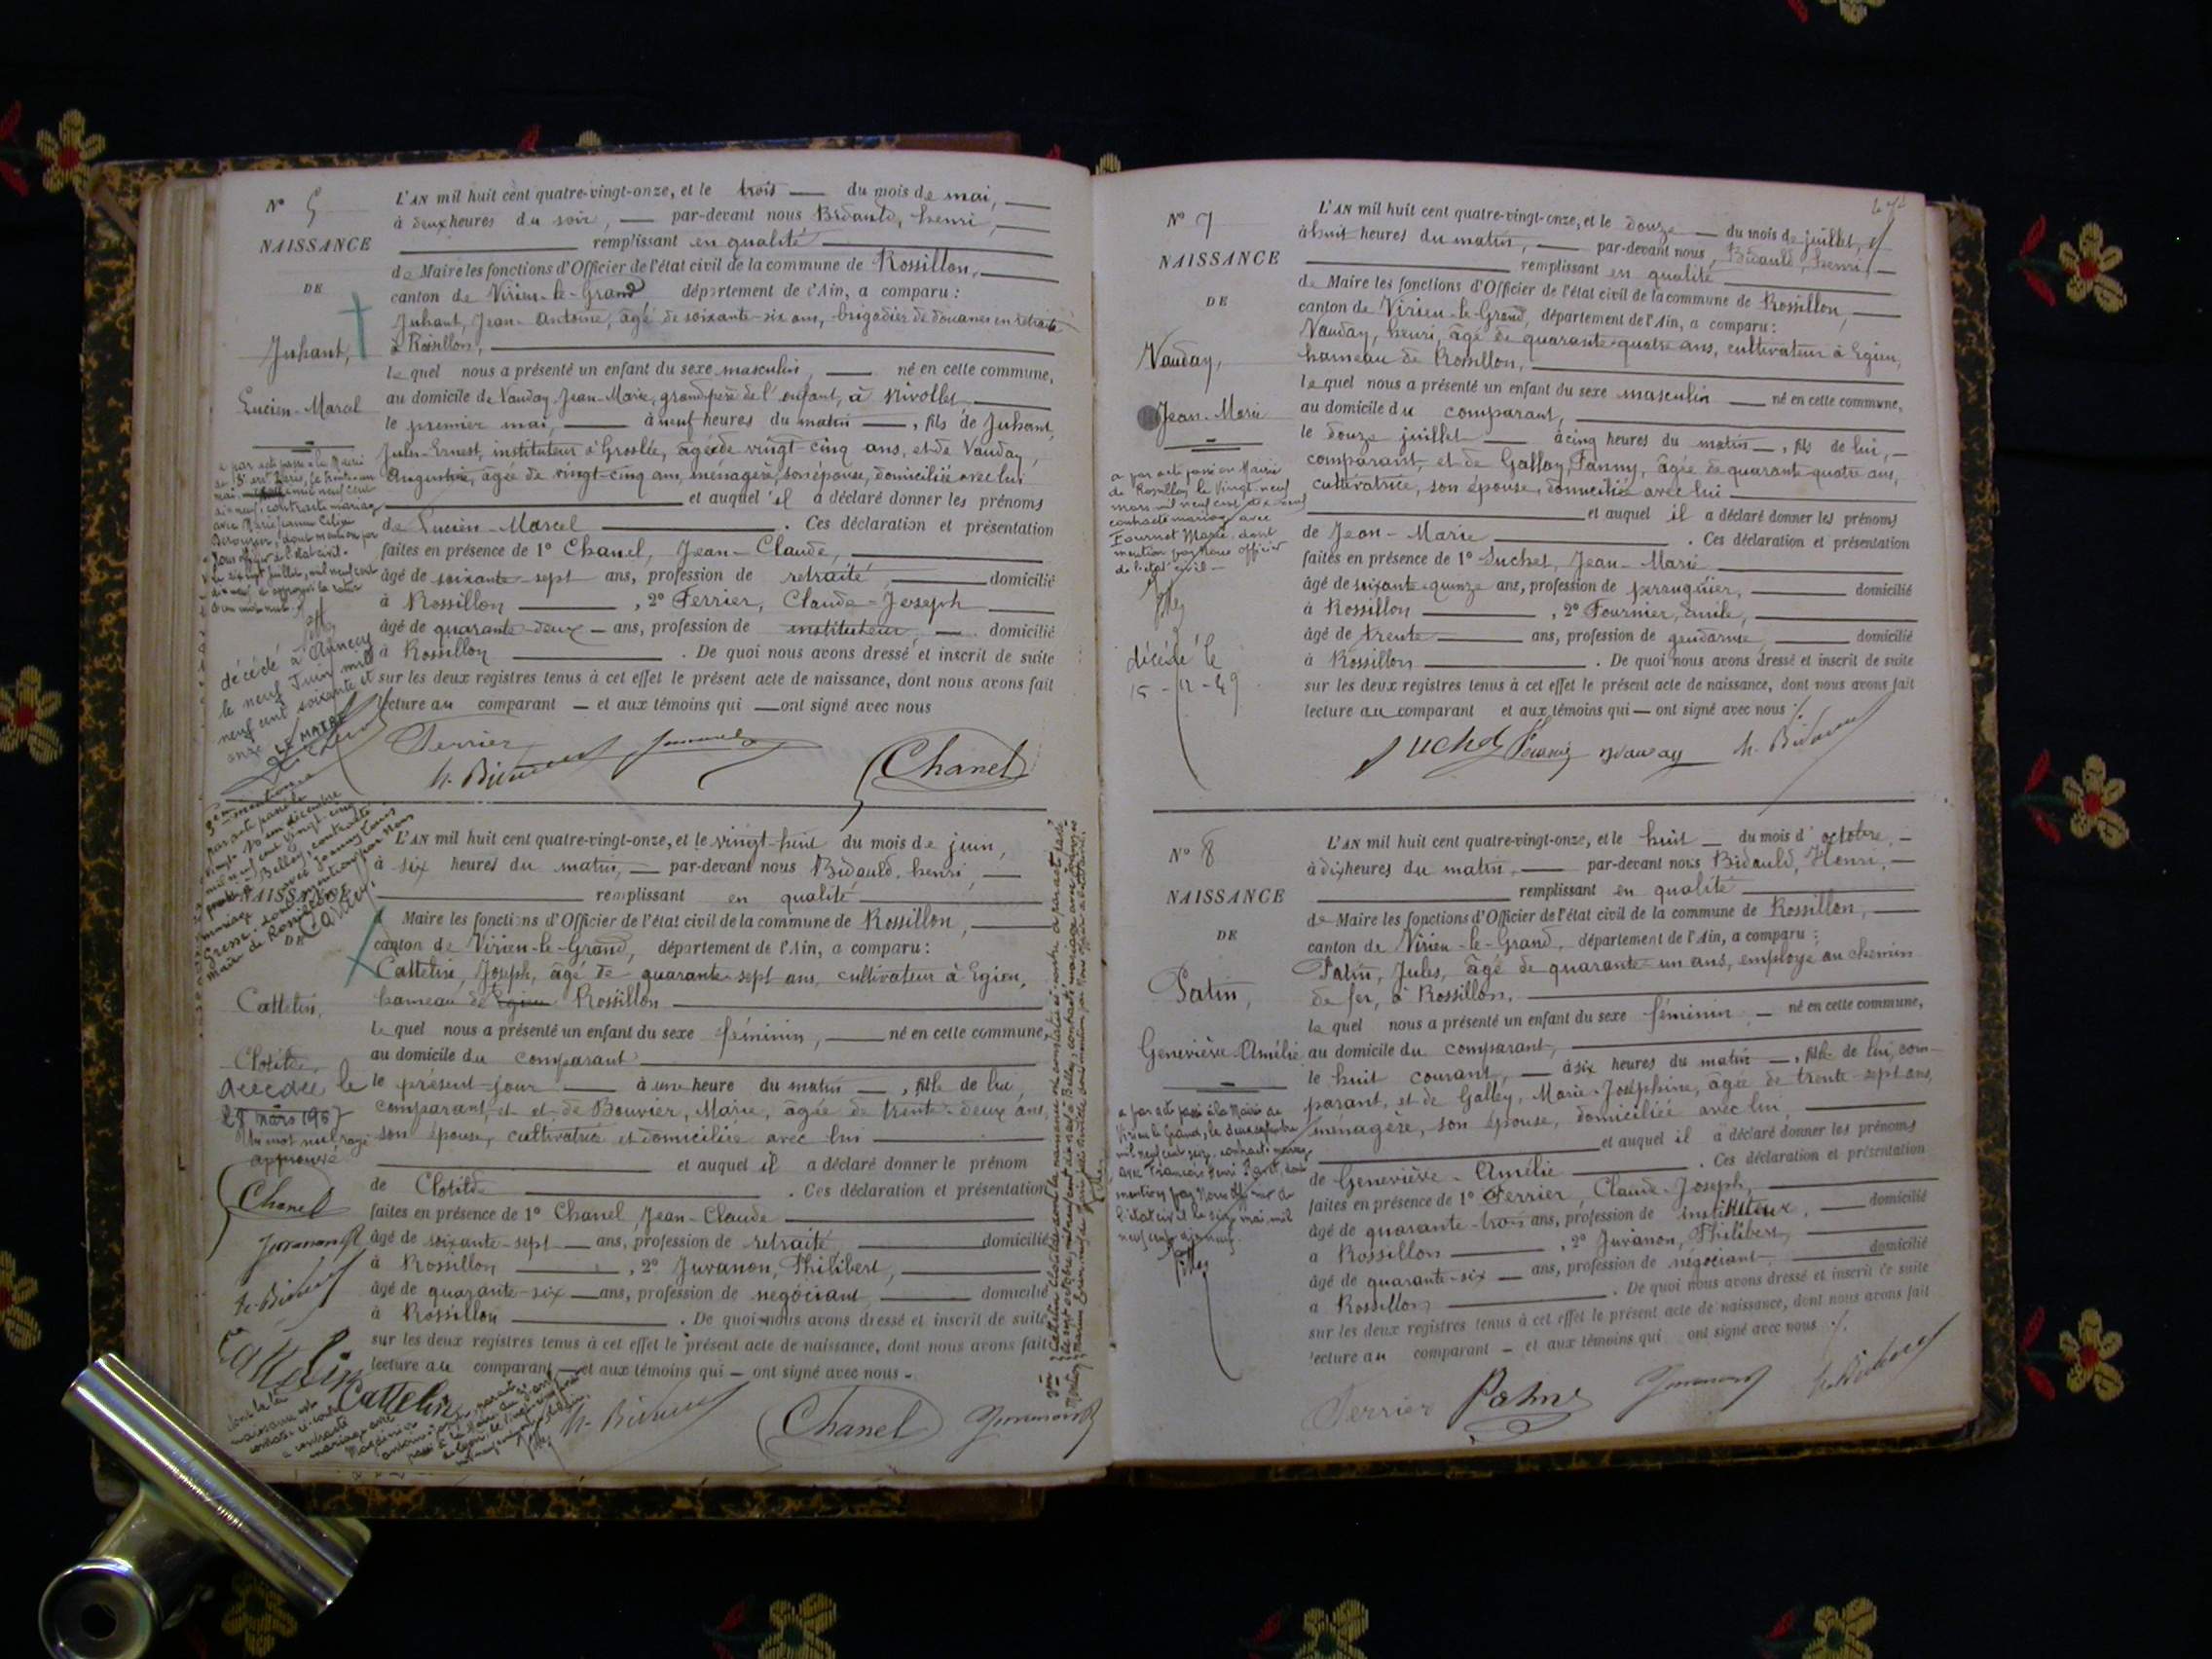 N° 5
NAISSANCE
DE
Juhant,
Lucien-Marcel
L'AN mil huit cent quatre-vingt-onze, et le trois du mois de mai,
à deux heures du soir, par-devant nous Bidauld, henri,
remplissant en qualité
de Maire les fonctions d'Officier de l'état civil de la commune de Rossillon,
canton de Virieu-le-Grand département de l'Ain, a comparu :
Juhant, Jean-Antoine, âgé de soixante-six ans, brigadier de douanes en retraite
à Rossillon,
le quel nous a présenté un enfant du sexe masculin, né en cette commune,
au domicile de Vauday, Jean-Marie, grand-père de l'enfant, à Nivollet
le premier mai, à neuf heures du matin, fils de Juhant,
Jules-Ernest, instituteur à Groslée, âgé de vingt-cinq ans, et de Vauday,
Augustine, âgée de vingt-cinq ans, ménagère, son épouse, domiciliée avec lui
et auquel il a déclaré donner les prénoms
de Lucien-Marcel . Ces déclaration et présentation
faites en présence de 1° Chanel, Jean-Claude,
âgé de soixante-sept ans, profession de retraité, domicilié
à Rossillon , 2° Ferrier, Claude-Joseph
âgé de quarante-deux ans, profession de instituteur, domicilié
à Rossillon . De quoi nous avons dressé et inscrit de suite
sur les deux registres tenus à cet effet le présent acte de naissance, dont nous avons fait
lecture au comparant et aux témoins qui ont signé avec nous
décédé à Annecy
le neuf Juin mil
neuf cent soixante et
onze LE MAIRE
Ferrier
H. Bidauld
Chanel
NAISSANCE
DE
Cattelin,
Clotilde,
décédée le
28 mars 1967
Un mot nul rayé
approuvé
Chanel
L'AN mil huit cent quatre-vingt-onze, et le vingt-huit du mois de juin,
à six heures du matin, par-devant nous Bidauld, henri,
remplissant en qualité
Maire les fonctions d'Officier de l'état civil de la commune de Rossillon,
canton de Virieu-le-Grand, département de l'Ain, a comparu :
Cattelin, Joseph, âgé de quarante-sept ans, cultivateur à Egieu,
hameau de Egieu Rossillon
le quel nous a présenté un enfant du sexe féminin, né en cette commune,
au domicile du comparant
le présent jour à une heure du matin, fille de lui
comparant, et et de Bouvier, Marie, âgée de trente-deux ans,
son épouse, cultivatrice et domiciliée avec lui
et auquel il a déclaré donner le prénom
de Clotilde . Ces déclaration et présentation
faites en présence de 1° Chanel, Jean-Claude
âgé de soixante-sept ans, profession de retraité, domicilié
à Rossillon , 2° Juvanon, Philibert,
âgé de quarante-six ans, profession de négociant, domicilié
à Rossillon . De quoi nous avons dressé et inscrit de suite
sur les deux registres tenus à cet effet le présent acte de naissance, dont nous avons fait
lecture au comparant et aux témoins qui ont signé avec nous.
Cattelin
Cattelin
H. Bidauld
Chanel
N° 7
NAISSANCE
DE
Vauday,
Jean-Marie
L'AN mil huit cent quatre-vingt-onze, et le douze du mois de juillet,
à huit heures du matin, par-devant nous, Bidauld, henri,
remplissant en qualité
de Maire les fonctions d'Officier de l'état civil de la commune de Rossillon,
canton de Virieu-le-Grand, département de l'Ain, a comparu :
Vauday, henri, âgé de quarante-quatre ans, cultivateur à Egieu,
hameau de Rossillon,
le quel nous a présenté un enfant du sexe masculin né en cette commune,
au domicile du comparant,
le douze juillet à cinq heures du matin, fils de lui,
comparant, et de Gallay, Fanny, âgée de quarante-quatre ans,
cultivatrice, son épouse, domiciliée avec lui
et auquel il a déclaré donner les prénoms
de Jean-Marie . Ces déclaration et présentation
faites en présence de 1° Suchet, Jean-Marie
âgé de soixante-quinze ans, profession de perruquier, domicilié
à Rossillon , 2° Fournier, Emile,
âgé de trente ans, profession de gendarme, domicilié
à Rossillon . De quoi nous avons dressé et inscrit de suite
sur les deux registres tenus à cet effet le présent acte de naissance, dont nous avons fait
lecture au comparant et aux témoins qui ont signé avec nous
a par acte passé en Mairie
de Rossillon le vingt-neuf
mars mil neuf cent dix-neuf
contracté mariage avec
Fournet Marie, dont
mention par Nous officier
de l'état civil
décédé le
15-12-49
Suchet
Vauday
H. Bidauld
N° 8
NAISSANCE
DE
Patin,
Geneviève-Amélie
L'AN mil huit cent quatre-vingt-onze, et le huit du mois d'octobre,
à dix heures du matin, par-devant nous Bidauld, Henri,
remplissant en qualité
de Maire les fonctions d'Officier de l'état civil de la commune de Rossillon,
canton de Virieu-le-Grand, département de l'Ain, a comparu :
Patin, Jules, âgé de quarante-un ans, employé au chemin
de fer, à Rossillon,
le quel nous a présenté un enfant du sexe féminin né en cette commune,
au domicile du comparant,
le huit courant, à six heures du matin, fille de lui, com-
parant, et de Galley, Marie-Joséphine, âgée de trente-sept ans,
ménagère, son épouse, domiciliée avec lui,
et auquel il a déclaré donner les prénoms
de Geneviève-Amélie . Ces déclaration et présentation
faites en présence de 1° Ferrier, Claude-Joseph,
âgé de quarante-trois ans, profession de instituteur, domicilié
à Rossillon , 2° Juvanon, Philibert,
âgé de quarante-six ans, profession de négociant, domicilié
à Rossillon . De quoi nous avons dressé et inscrit de suite
sur les deux registres tenus à cet effet le présent acte de naissance, dont nous avons fait
lecture au comparant et aux témoins qui ont signé avec nous
Ferrier
Patin
H. Bidauld